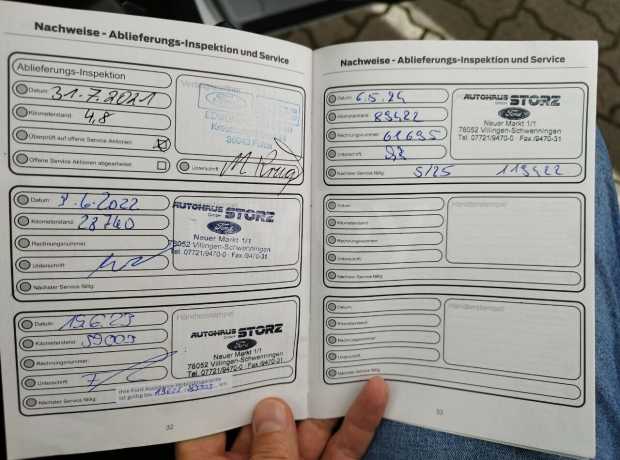 Nachweise - Ablieferungs-Inspektion und Service
Ablieferungs-Inspektion
Datum: 31.7.2021
Kilometerstand: 4,8
Überprüft auf offene Service Aktionen:
Offene Service Aktionen abgearbeitet:
Ford
Unterschrift: M. Krug
Datum: 1.6.2022
Kilometerstand: 28740
Rechnungsnummer:
Unterschrift:
Nächster Service fällig:
AUTOHAUS STORZ
GmbH
Ford
Neuer Markt 1/1
78052 Villingen-Schwenningen
Tel. 07721/9470-0 · Fax /9470-31
Datum: 15.6.23
Kilometerstand: 59003
Rechnungsnummer:
Unterschrift:
Nächster Service fällig:
Händlerstempel
AUTOHAUS STORZ
GmbH
Ford
Neuer Markt 1/1
78052 Villingen-Schwenningen
Tel. 07721/9470-0 · Fax /9470-31
ist gültig bis
32
Nachweise - Ablieferungs-Inspektion und Service
Datum: 6.5.24
Kilometerstand: 89422
Rechnungsnummer: 61695
Unterschrift:
Nächster Service fällig: 5/25 119422
AUTOHAUS STORZ
GmbH
Ford
Neuer Markt 1/1
78052 Villingen-Schwenningen
Tel. 07721/9470-0 · Fax /9470-31
Datum:
Kilometerstand:
Rechnungsnummer:
Unterschrift:
Nächster Service fällig:
Händlerstempel
Datum:
Kilometerstand:
Rechnungsnummer:
Unterschrift:
Nächster Service fällig:
Händlerstempel
33